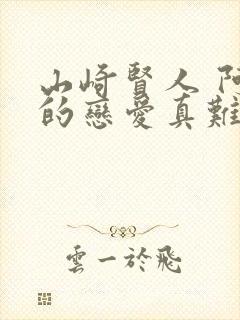 山崎賢人 阿
的戀愛真難
雲一於飛